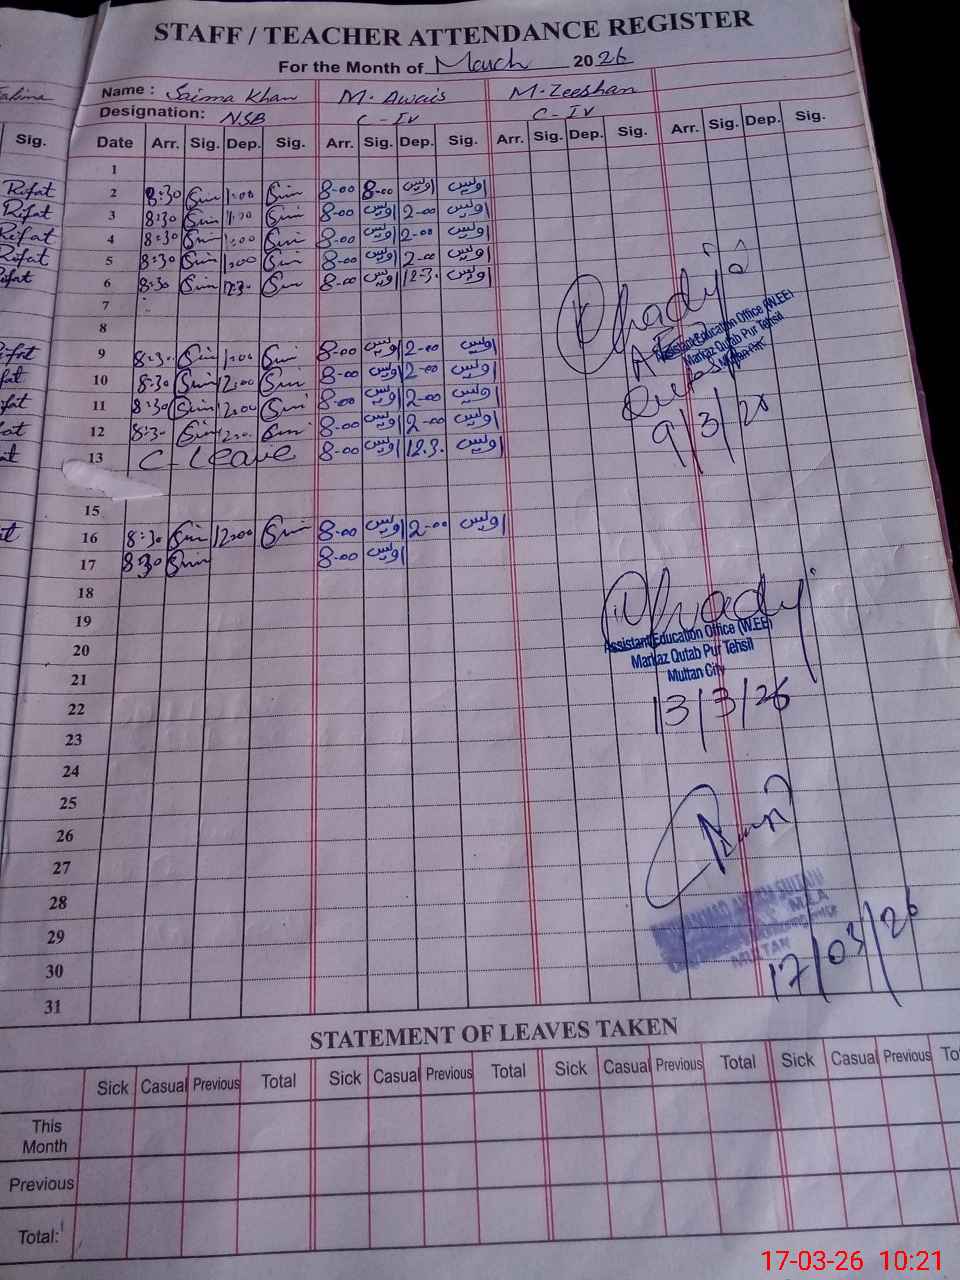 STAFF / TEACHER ATTENDANCE REGISTER
For the Month of March 2026
Name : Saima Khan M. Awais M. Zeeshan
Designation: NSB C-IV C-IV
Sig. Date Arr. Sig. Dep. Sig. Arr. Sig. Dep. Sig. Arr. Sig. Dep. Sig. Arr. Sig. Dep. Sig.
1
Rifat 2 8:30 1:00 8-00 8-00 اویس اویس
Rifat 3 8:30 8-00 اویس 2-00 اویس
Rifat 4 8:30 1:00 8-00 اویس 2-00 اویس
Rifat 5 8:30 1:00 8-00 اویس 2-00 اویس
6 8:30 12:3. 8-00 اویس 12-3. اویس
7
8
9 8:3. 1:00 8-00 اویس 2-00 اویس
10 8:30 12:00 8-00 اویس 2-00 اویس
11 8:30 12:00 8-00 اویس 2-00 اویس
12 8:3. 8-00 اویس 2-00 اویس
13 C-Leave 8-00 اویس 12.3. اویس
15
16 8:30 12:00 8-00 اویس 2-00 اویس
17 8:30 8-00 اویس
18
19
20
21
22
23
24
25
26
27
28
29
30
31
Khadija
Assistant Education Office (W.EE)
Markaz Qutab Pur Tehsil
9/3/26
Khadija
Assistant Education Office (W.EE)
Markaz Qutab Pur Tehsil
Multan City
13/3/26
17/03/26
STATEMENT OF LEAVES TAKEN
Sick Casual Previous Total Sick Casual Previous Total Sick Casual Previous Total Sick Casual Previous
This
Month
Previous
Total:
17-03-26 10:21